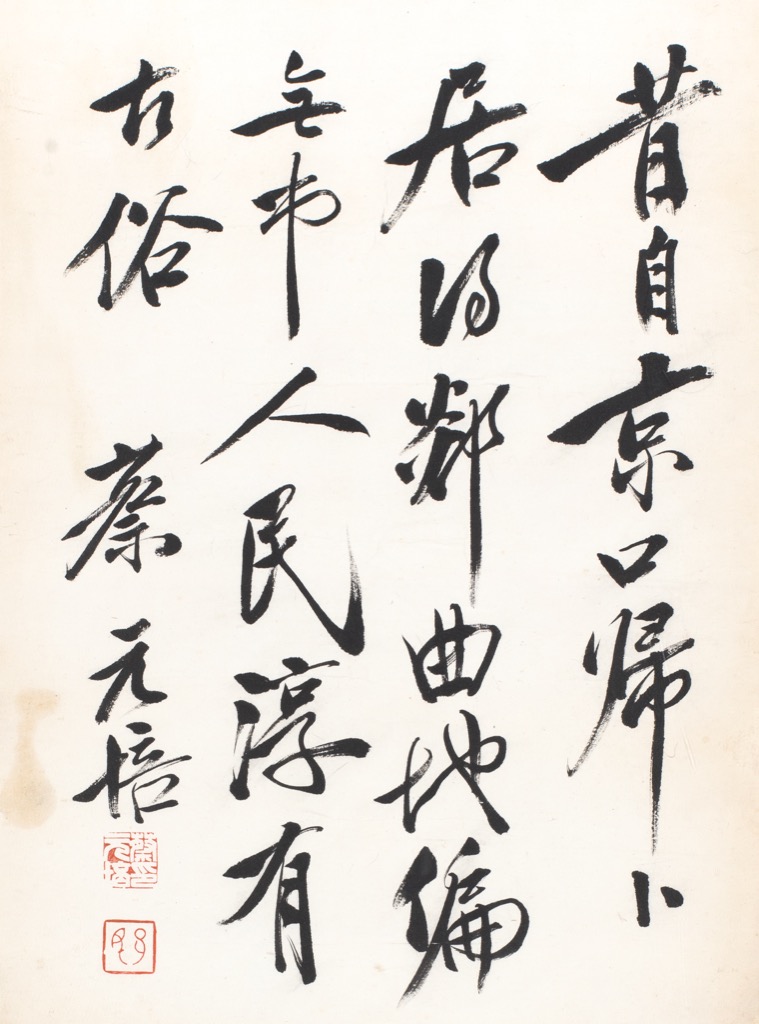 昔自京口帰卜
居得鄰曲地偏
無市人民淳有
古俗
蔡元培
蔡元培印